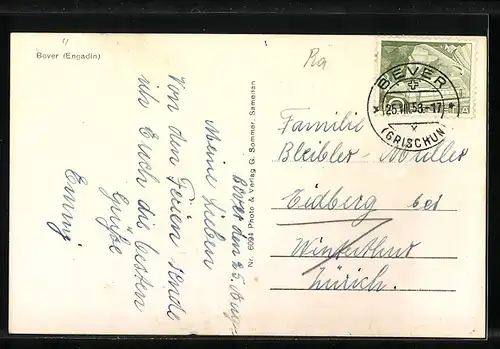 Bever (Engadin)
Bever den 25. Aug.
Meine Lieben
Von den Ferien sende
ich Euch die besten
Grüße
Emmy
Nr. 6094 Photo & Verlag G. Sommer, Samedan
BEVER
25.VIII.53.-17
(GRISCHUN)
Familie
Bleibler-Müller
Eidberg bei
Winterthur
Zürich.